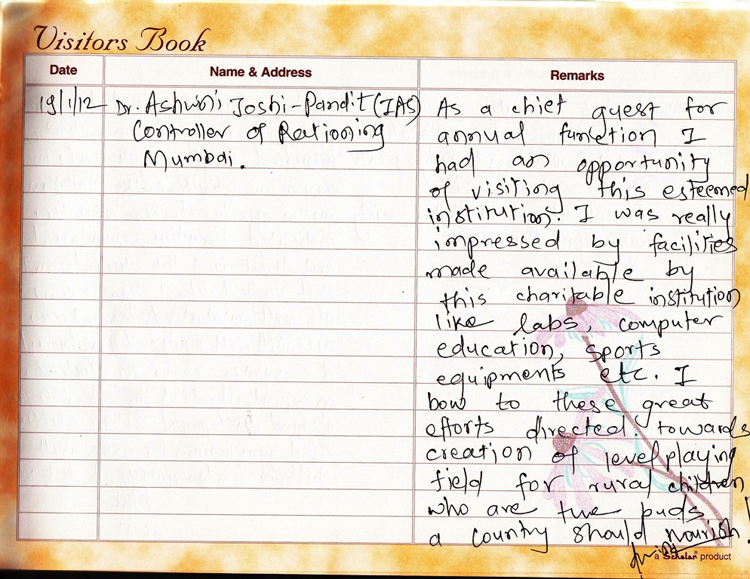 Visitors Book
Date Name & Address Remarks
19/1/12 Dr. Ashwini Joshi-Pandit (IAS)
Controller of Rationing
Mumbai.
As a chief guest for
annual function I
had an opportunity
of visiting this esteemed
institution. I was really
impressed by facilities
made available by
this charitable institution
like labs, computer
education, sports
equipments etc. I
bow to these great
efforts directed towards
creation of level playing
field for rural children
who are the buds
a country should nourish!
a Scholar product